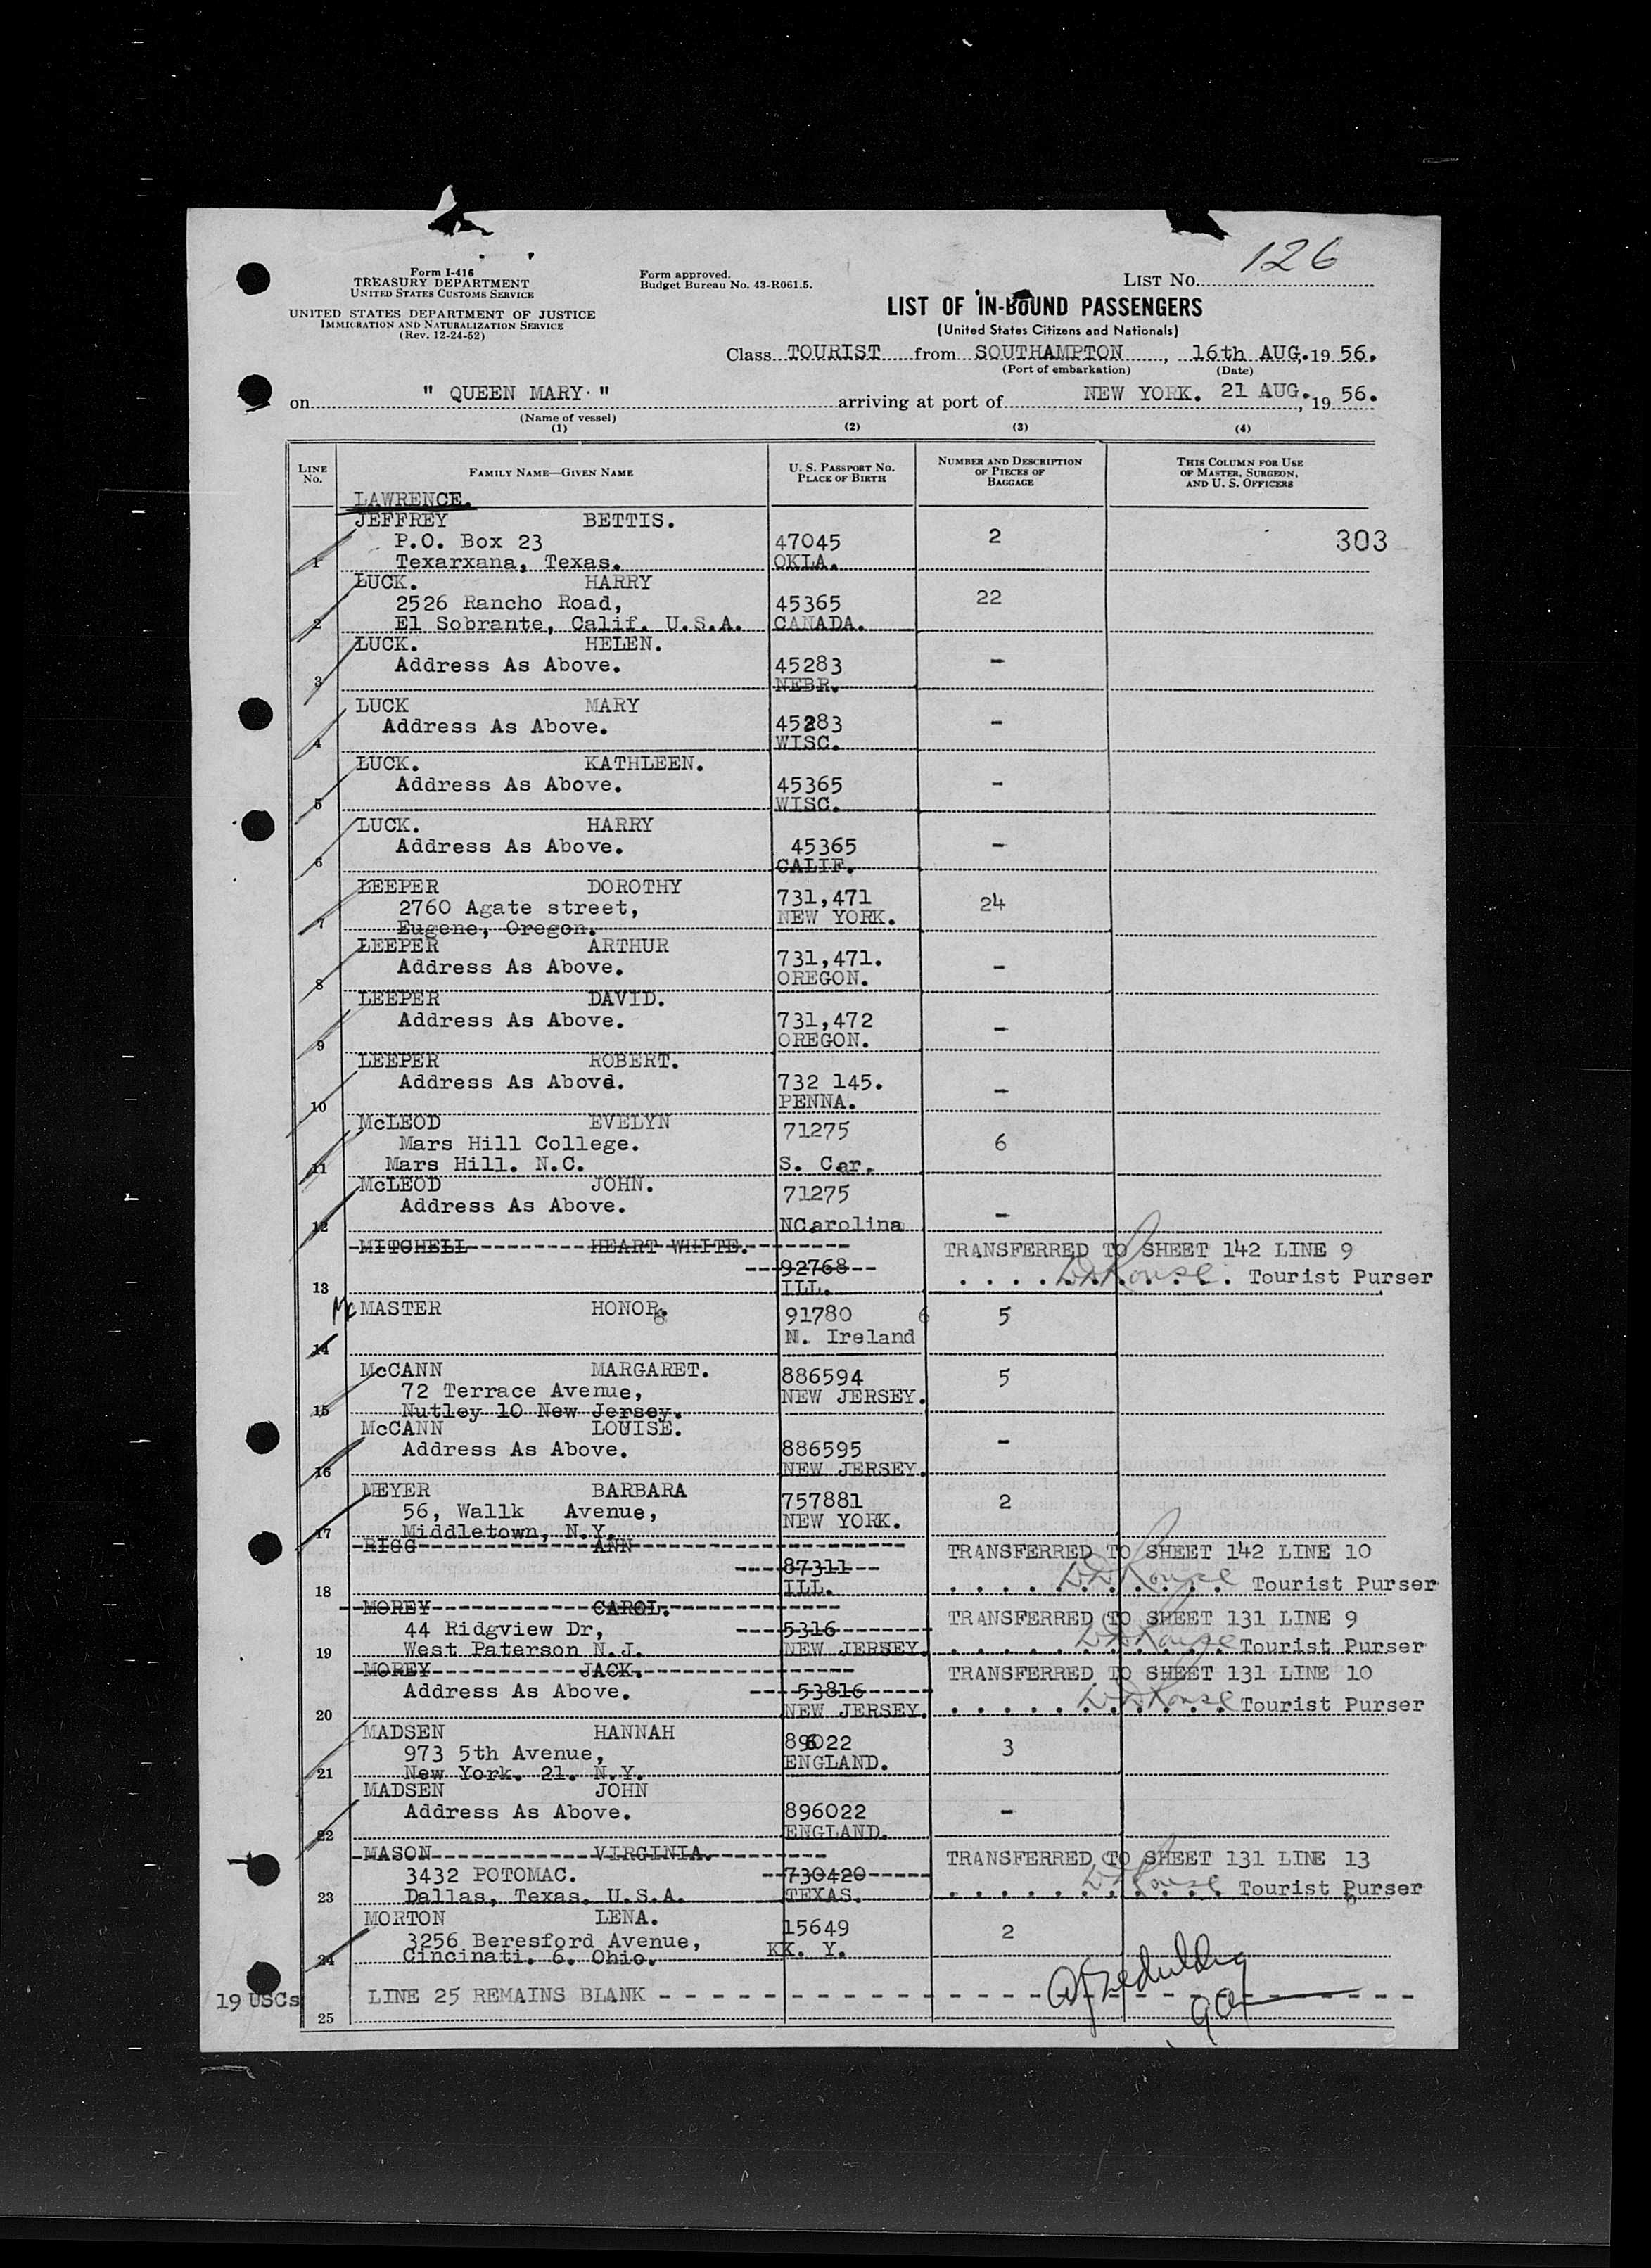 126
Form I-416
TREASURY DEPARTMENT
UNITED STATES CUSTOMS SERVICE
UNITED STATES DEPARTMENT OF JUSTICE
IMMIGRATION AND NATURALIZATION SERVICE
(Rev. 12-24-52)
Form approved.
Budget Bureau No. 43-R061.5.
LIST NO.
LIST OF IN-BOUND PASSENGERS
(United States Citizens and Nationals)
Class TOURIST from SOUTHAMPTON, 16th AUG. 19 56.
(Port of embarkation) (Date)
on " QUEEN MARY " arriving at port of NEW YORK. 21 AUG., 19 56.
(Name of vessel)
(1) (2) (3) (4)
LINE NO. FAMILY NAME—GIVEN NAME U. S. PASSPORT NO. PLACE OF BIRTH NUMBER AND DESCRIPTION OF PIECES OF BAGGAGE THIS COLUMN FOR USE OF MASTER, SURGEON, AND U. S. OFFICERS
LAWRENCE.
JEFFREY BETTIS.
P.O. Box 23 47045 2 303
1 Texarxana, Texas. OKLA.
LUCK. HARRY
2526 Rancho Road, 45365 22
2 El Sobrante, Calif. U.S.A. CANADA.
LUCK. HELEN.
Address As Above. 45283 -
3 NEBR.
LUCK MARY
Address As Above. 45283 -
4 WISC.
LUCK. KATHLEEN.
Address As Above. 45365 -
5 WISC.
LUCK. HARRY
Address As Above. 45365 -
6 CALIF.
LEEPER DOROTHY 731,471
2760 Agate street, NEW YORK. 24
7 Eugene, Oregon.
LEEPER ARTHUR 731,471.
Address As Above. OREGON. -
8
LEEPER DAVID.
Address As Above. 731,472 -
9 OREGON.
LEEPER ROBERT.
Address As Above. 732 145. -
10 PENNA.
McLEOD EVELYN 71275
Mars Hill College. 6
11 Mars Hill. N.C. S. Car.
McLEOD JOHN. 71275
Address As Above. -
12 NCarolina
MITCHELL HEART WHITE. TRANSFERRED TO SHEET 142 LINE 9
92768 D Rouse Tourist Purser
13 ILL.
Mc MASTER HONOR. 91780 6 5
N. Ireland
14
McCANN MARGARET. 886594 5
72 Terrace Avenue, NEW JERSEY.
15 Nutley 10 New Jersey.
McCANN LOUISE.
Address As Above. 886595 -
16 NEW JERSEY.
MEYER BARBARA 757881 2
56, Wallk Avenue, NEW YORK.
17 Middletown, N.Y.
RIGG ANN TRANSFERRED TO SHEET 142 LINE 10
87311 D Rouse Tourist Purser
18 ILL.
MOREY CAROL. TRANSFERRED TO SHEET 131 LINE 9
44 Ridgview Dr, 5316
19 West Paterson N.J. NEW JERSEY. D Rouse Tourist Purser
MOREY JACK. TRANSFERRED TO SHEET 131 LINE 10
Address As Above. 53816 D Rouse Tourist Purser
20 NEW JERSEY.
MADSEN HANNAH 896022 3
973 5th Avenue, ENGLAND.
21 New York. 21. N.Y.
MADSEN JOHN
Address As Above. 896022 -
22 ENGLAND.
MASON VIRGINIA. TRANSFERRED TO SHEET 131 LINE 13
3432 POTOMAC. 730420 D Rouse Tourist Purser
23 Dallas, Texas. U.S.A. TEXAS.
MORTON LENA. 15649 2
3256 Beresford Avenue, KK. Y.
24 Cincinati. 6. Ohio.
19 USCs LINE 25 REMAINS BLANK - - - - - - - - - - - - - - - - - -
25